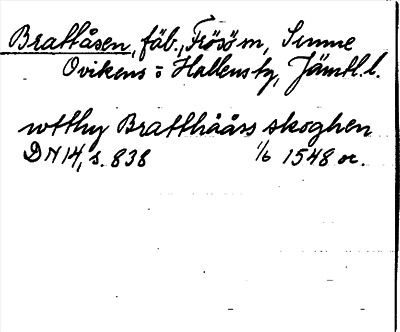 Brattåsen, fäb., Frösö m, Sunne
Ovikens o Hallens tg, Jämtl. l.
wtthy Bratthåårs skoghen
DN 14, s. 838 1/6 1548 or.